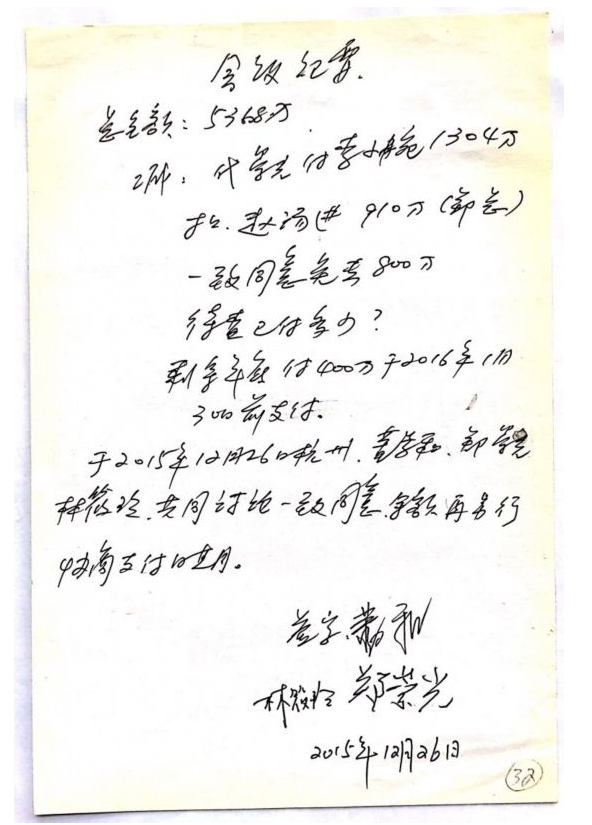 会议纪要
总金额：5368万
代荣光付李小宛1304万
910万（郑总）
一致同意免去800万
待查已付多少？
剩余年底付400万于2016年1月
30日前支付。
于2015年12月26日杭州、董学和、郑荣光
林筱玲、共同讨论一致同意、余款再另行
协商支付日期。
签字
林筱玲 郑荣光
2015年12月26日
32